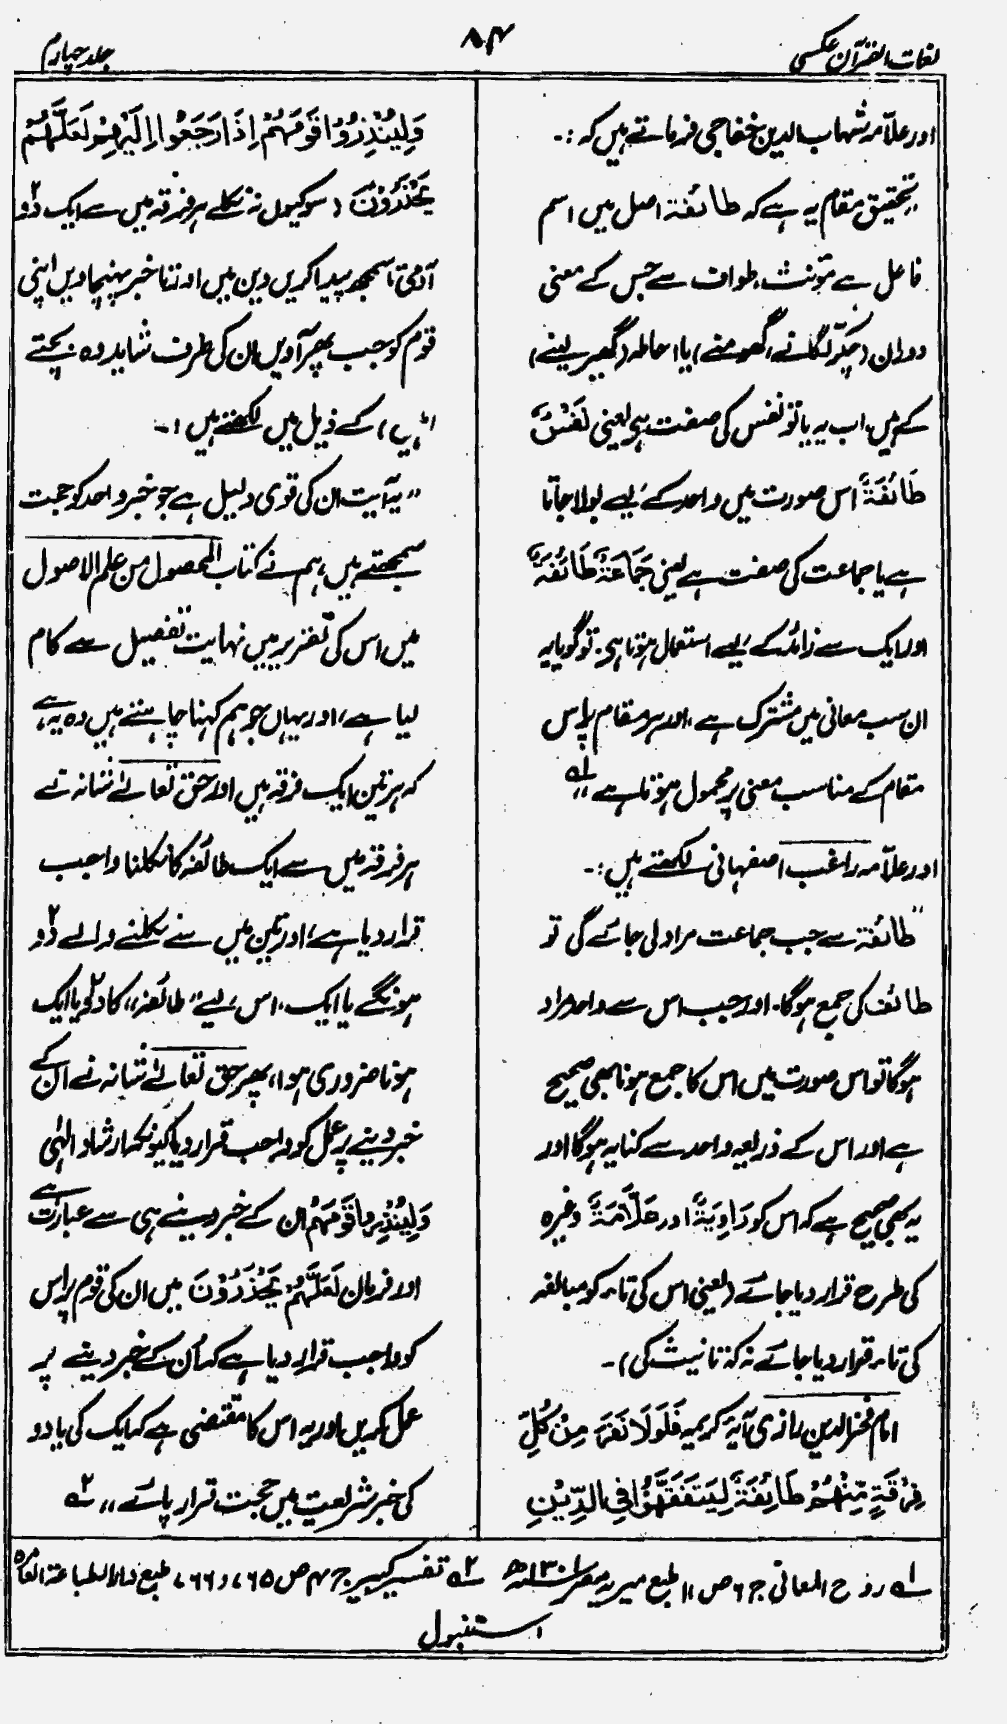 لغات القرآن عکسی
۸۴
جلد چہارم
اور علامہ شہاب الدین خفاجی فرماتے ہیں کہ :۔
"تحقیق مقام یہ ہے کہ طائفة اصل میں اسم
فاعل ہے مؤنث، طواف سے جس کے معنی
دوران (چکر لگانے، گھومنے) یا احاطہ (گھیر لینے)
کے ہیں، اب یہ یا تو نفس کی صفت ہے یعنی نَفْسٌ
طَائِفَةٌ اس صورت میں واحد کے لیے بولا جاتا
ہے یا جماعت کی صفت ہے یعنی جَمَاعَةٌ طَائِفَةٌ
اور ایک سے زائد کے لیے استعمال ہوتا ہے۔ تو گویا یہ
ان سب معانی میں مشترک ہے، اور ہر مقام پر اس
مقام کے مناسب معنی پر محمول ہوتا ہے" ؎۱
اور علامہ راغب اصفہانی لکھتے ہیں :۔
"طائفة سے جب جماعت مراد لی جائے گی تو
طائف کی جمع ہوگا۔ اور جب اس سے واحد مراد
ہوگا تو اس صورت میں اس کا جمع ہونا بھی صحیح
ہے اور اس کے ذریعہ واحد سے کنایہ ہوگا اور
یہ بھی صحیح ہے کہ اس کو رَاوِیَةٌ اور عَلَّامَةٌ وغیرہ
کی طرح قرار دیا جائے (یعنی اس کی تاء کو مبالغہ
کی تاء قرار دیا جائے نہ کہ تانیث کی)۔
امام فخر الدین رازی آیۂ کریمہ فَلَوْلَا نَفَرَ مِنْ كُلِّ
فِرْقَةٍ مِّنْهُمْ طَائِفَةٌ لِّيَتَفَقَّهُوْا فِي الدِّيْنِ
وَلِيُنْذِرُوْا قَوْمَهُمْ اِذَا رَجَعُوْا اِلَيْهِمْ لَعَلَّهُمْ
يَحْذَرُوْنَ (سو کیوں نہ نکلے ہر فرقہ میں سے ایک دو۲
آدمی تا سمجھ پیدا کریں دین میں اور تا خبر پہنچاویں اپنی
قوم کو جب پھر آویں ان کی طرف شاید وہ بچتے
رہیں) کے ذیل میں لکھتے ہیں :۔
"یہ آیت ان کی قوی دلیل ہے جو خبر واحد کو حجت
سمجھتے ہیں، ہم نے کتاب المحصول من علم الاصول
میں اس کی تقریر میں نہایت تفصیل سے کام
لیا ہے، اور یہاں جو ہم کہنا چاہتے ہیں وہ یہ ہے
کہ ہر تین ایک فرقہ ہیں اور حق تعالیٰ شانہ نے
ہر فرقہ میں سے ایک طائفہ کا نکلنا واجب
قرار دیا ہے، اور تین میں سے نکلنے والے دو۲
ہونگے یا ایک، اس لیے "طائفہ" کا دو۲ یا ایک
ہونا ضروری ہوا، پھر حق تعالیٰ شانہ نے ان کے
خبر دینے پر عمل کو واجب قرار دیا کیونکہ ارشاد الٰہی
وَلِيُنْذِرُوا قَوْمَهُمْ ان کے خبر دینے ہی سے عبارت ہے
اور فرمان لَعَلَّهُمْ يَحْذَرُوْنَ میں ان کی قوم پر اس
کو واجب قرار دیا ہے کہ اُن کے خبر دینے پر
عمل کریں اور یہ اس کا مقتضی ہے کہ ایک کی یا دو
کی خبر شریعت میں حجت قرار پائے" ؎۲
؎۱ روح المعانی ج ۶ ص ۱۱ طبع میریہ مصر ۱۳۰۱ھ ؎۲ تفسیر کبیر ج ۴ ص ۷۶۵ و ۷۶۶، طبع دار الطباعۃ العامرہ
استنبول